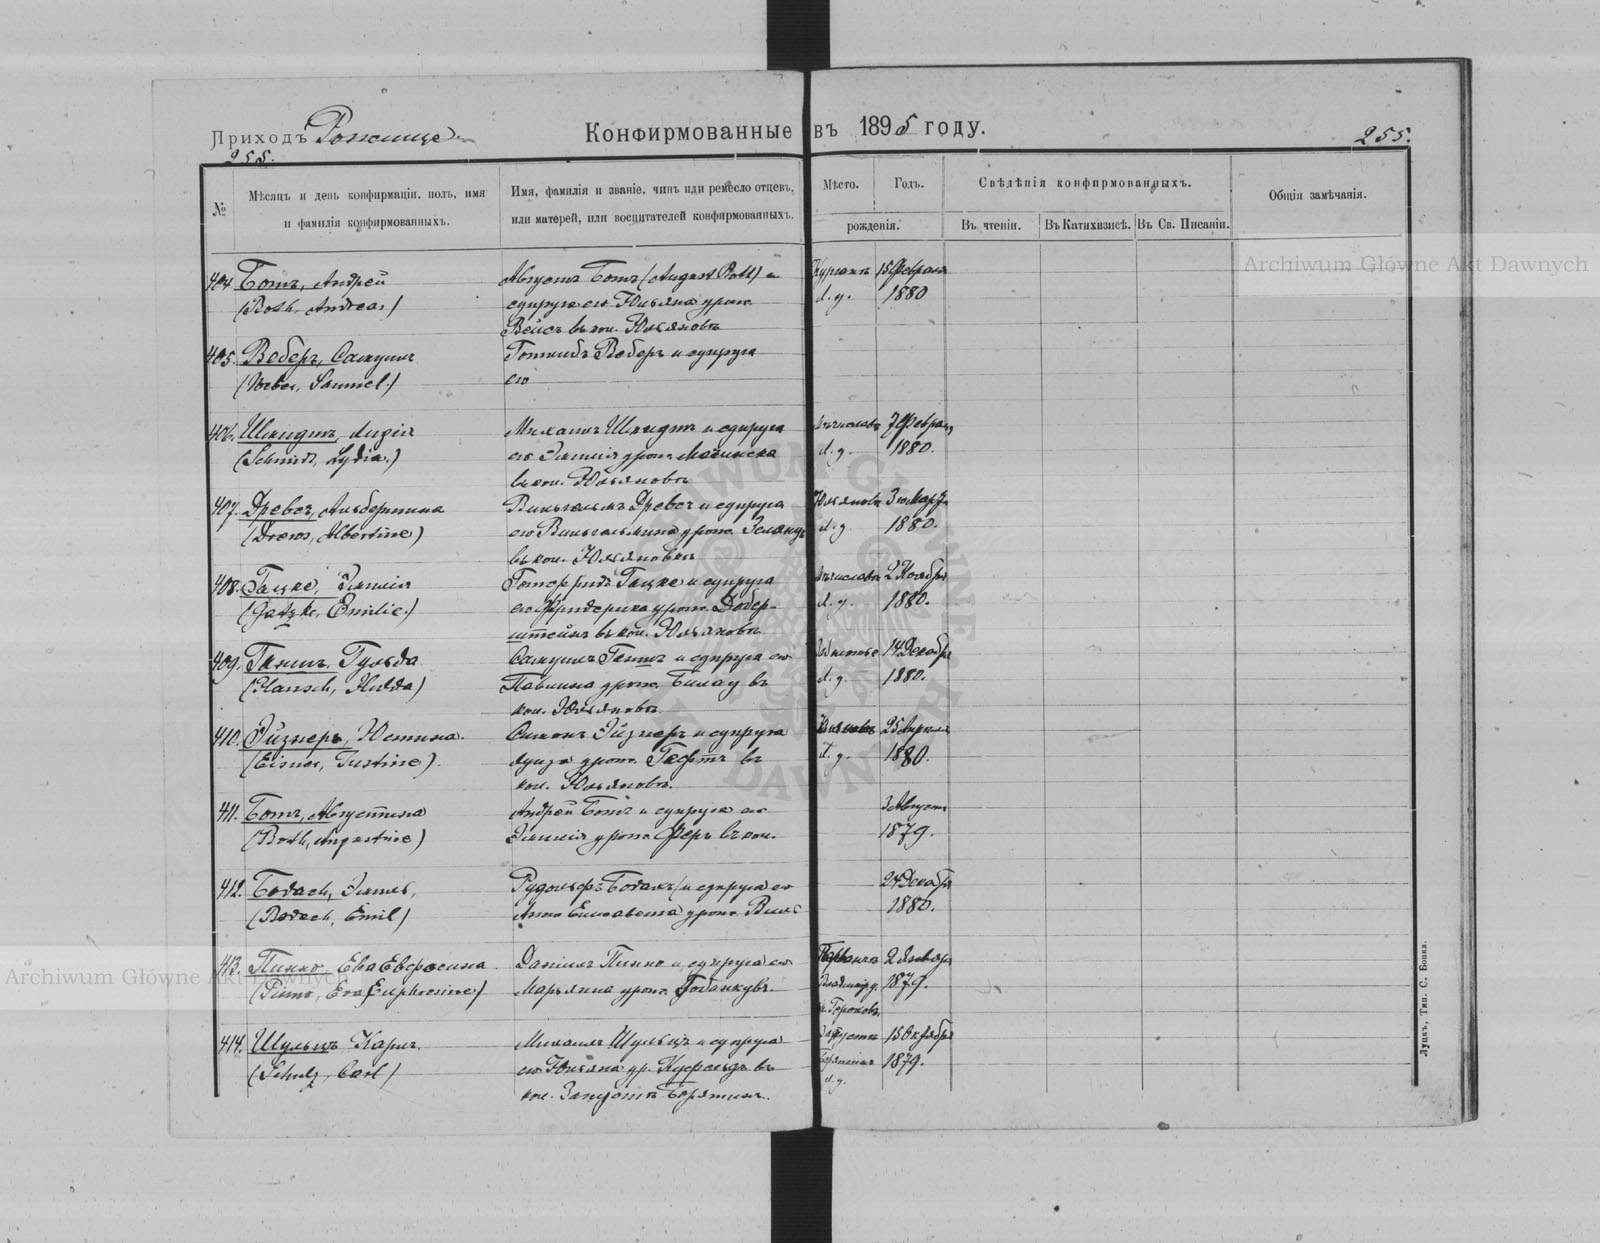 Приходъ Рожище.
Конфирмованные въ 1895 году.
255.
255.
№
Мѣсяцъ и день конфирмаціи, полъ, имя
и фамилія конфирмованныхъ.
Имя, фамилія и званіе, чинъ иди ремесло отцевъ,
или матерей, или воспитателей конфирмованныхъ.
Мѣсто.
Годъ.
рожденія.
Свѣдѣнія конфирмованныхъ.
Въ чтеніи.
Въ Катихизисѣ.
Въ Св. Писаніи.
Общія замѣчанія.
404. Ботъ, Андрей
(Both, Andreas)
Августъ Ботъ (August Both) и
супруга его Юльяна урож.
Вейсъ въ кол. Юльяновъ
15 Февраля
л. у. 1880
405. Веберъ, Самуилъ
(Weber, Samuel.)
Готлибъ Веберъ и супруга
его
406. Шмидтъ, Лидія
(Schmidt, Lydia.)
Михаилъ Шмидтъ и супруга
его Эмилія урож.
въ кол. Юльяновъ
7 Февраля
л. у. 1880.
407. Древсъ, Альбертина
(Drews, Albertine)
Вильгельмъ Древсъ и супруга
его Вильгельмина урож.
въ кол. Юльяновка
Юльяновъ 3го Марта
л. у. 1880.
408. Гацке, Эмилія
(Gatzke, Emilie.)
Готфридъ Гацке и супруга
его Фридерика урож. Добер-
штейнъ въ кол. Юльяновъ
2 Ноября
л. у. 1880.
409. Ганшъ, Гульда
(Hansch, Hulda)
Самуилъ Ганшъ и супруга его
Павлина урож. въ
кол. Юльяновъ
14 Декабря
л. у. 1880.
410. Эйзнеръ, Юстина.
(Eisner, Justine).
Симонъ Эйзнеръ и супруга
Луиза урож. въ
кол. Юльяновъ.
25 Апрѣля
л. у. 1880.
411. Ботъ, Августина
(Both, Augustine)
Андрей Ботъ и супруга его
Эмилія урож. Феръ въ кол.
3 Августа
1879.
412. Бодach, Эмиль,
(Bodach, Emil)
Рудольфъ Бодахъ и супруга его
Анна Елисавета урож.
24 Декабря
1880.
413. Пинно, Ева Евфросина
(Pinno, Eva Euphrosine)
Даніилъ Пинно и супруга его
Марьянна урож.
2 Января
Владимір. у. 1879.
414. Шульцъ Карлъ.
(Schulz, Carl)
Михаилъ Шульцъ и супруга
его Юльяна ур. въ
кол. Запустъ Борятинъ.
15 Октября
1879.
л. у.
Луцкъ, Тип. С. Бонка.
Archiwum Główne Akt Dawnych
Archiwum Główne Akt Dawnych
ARCHIWUM GŁÓWNE AKT DAWNYCH